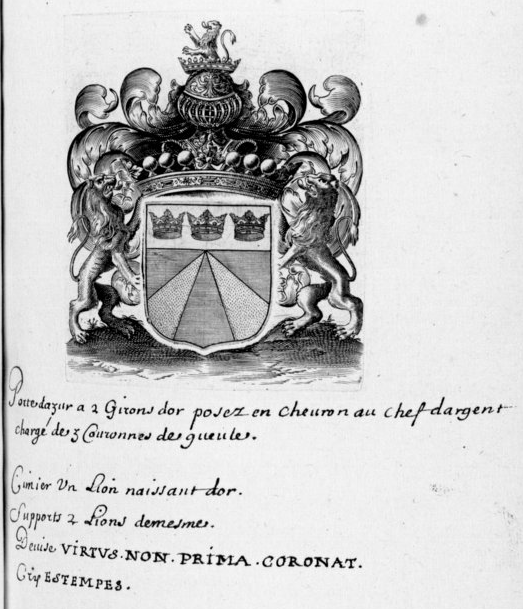 Porte dazur a 2 Girons dor posez en cheuron au chef dargent
chargé de 3 Couronnes de gueule.
Cimier Vn Lion naissant dor.
Supports 2 Lions demesme.
Deuise VIRTVS.NON.PRIMA.CORONAT.
Cry ESTEMPES.